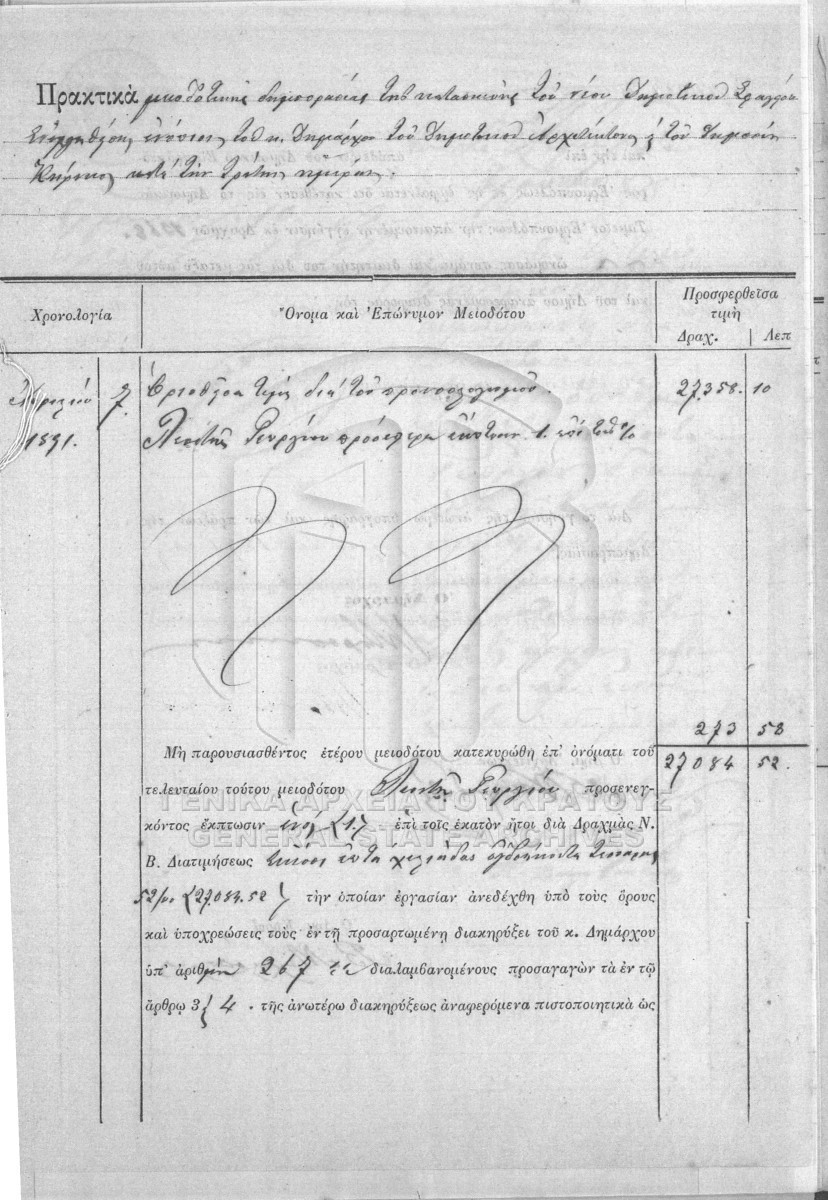 Πρακτικὰ μειοδοτικῆς δημοπρασίας τῆς κατασκευῆς τοῦ νέου Δημοτικοῦ
ἐνώπιον τοῦ κ. Δημάρχου τοῦ Δημοτικοῦ Ἀρχιτέκτονος & τοῦ Δημοσίου
Κήρυκος κατὰ τὴν τρίτην ἡμέραν.
Χρονολογία
Ὄνομα καὶ Ἐπώνυμον Μειοδότου
Προσφερθεῖσα
τιμὴ
Δραχ. Λεπ
7 Ὁρισθεῖσα τιμὴ διὰ τοῦ προϋπολογισμοῦ. 27.358. 10
1891. Γεωργίου προσέφερε ἔκπτωσιν 1. ἐπὶ τοῖς %
273 58
27084 52.
Μὴ παρουσιασθέντος ἑτέρου μειοδότου κατεκυρώθη ἐπ' ὀνόματι τοῦ
τελευταίου τούτου μειοδότου Γεωργίου προσενεγ-
κόντος ἔκπτωσιν ἑνός (1) ἐπὶ τοῖς ἑκατὸν ἤτοι διὰ Δραχμὰς Ν.
Β. Διατιμήσεως εἴκοσι ἑπτὰ χιλιάδας ὀγδοήκοντα τέσσαρας
52/00 (27.084.52) τὴν ὁποίαν ἐργασίαν ἀνεδέχθη ὑπὸ τοὺς ὅρους
καὶ ὑποχρεώσεις τοὺς ἐν τῇ προσαρτωμένῃ διακηρύξει τοῦ κ. Δημάρχου
ὑπ' ἀριθμὸν 267 διαλαμβανομένους προσαγαγὼν τὰ ἐν τῷ
ἄρθρῳ 3 & 4. τῆς ἀνωτέρω διακηρύξεως ἀναφερόμενα πιστοποιητικὰ ὡς
ΓΕΝΙΚΑ ΑΡΧΕΙΑ ΤΟΥ ΚΡΑΤΟΥΣ
GENERAL STATE ARCHIVES